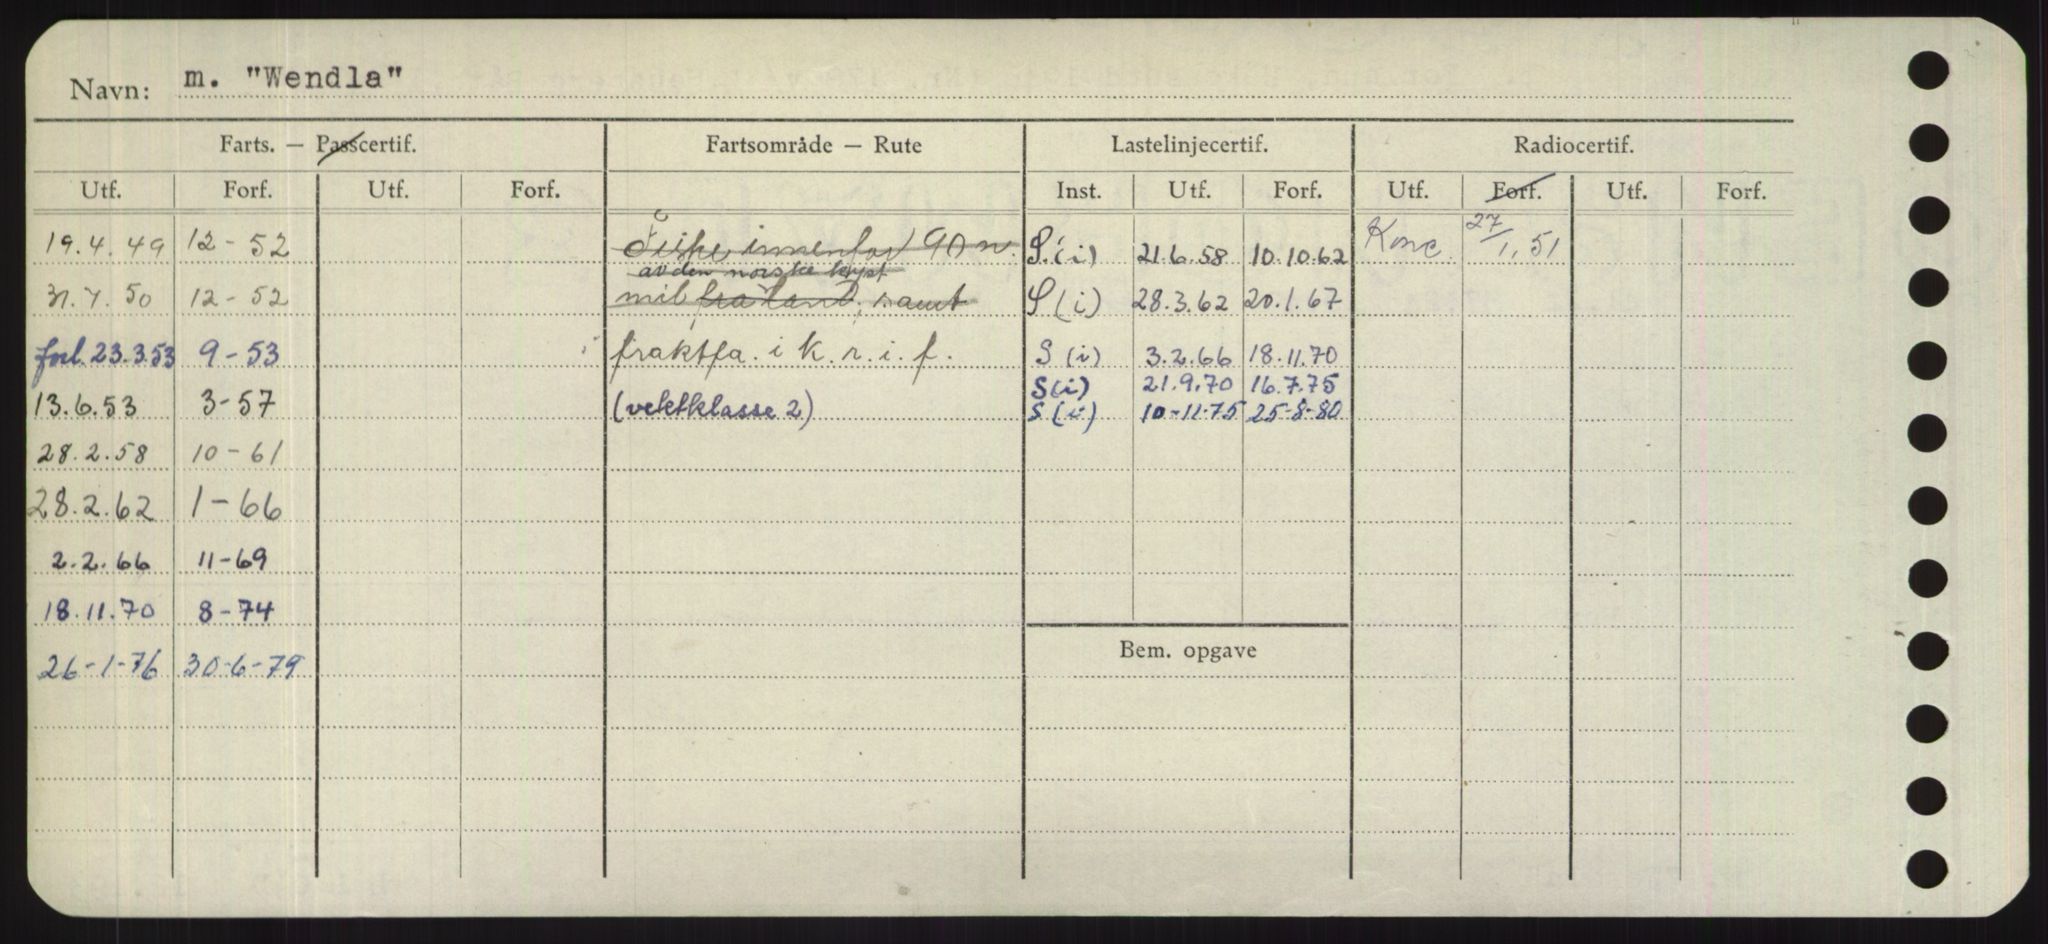 Navn: m. "Wendla"
Farts. — Passcertif. Fartsområde — Rute Lastelinjecertif. Radiocertif.
Utf. Forf. Utf. Forf. Inst. Utf. Forf. Utf. Forf. Utf. Forf.
19.4.49 12-52 Fiske innenfor 90 n. S.(i) 21.6.58 10.10.62 Konc. 27/1.51
av den norske kyst
31.7.50 12-52 mil fra land, samt S(i) 28.3.62 20.1.67
forl. 23.3.53 9-53 fraktfa. i k. r. i. f. S(i) 3.2.66 18.11.70
S(i) 21.9.70 16.7.75
13.6.53 3-57 (vektklasse 2) S(i) 10-11-75 25-8-80
28.2.58 10-61
28.2.62 1-66
2.2.66 11-69
18.11.70 8-74
26-1-76 30-6-79
Bem. opgave